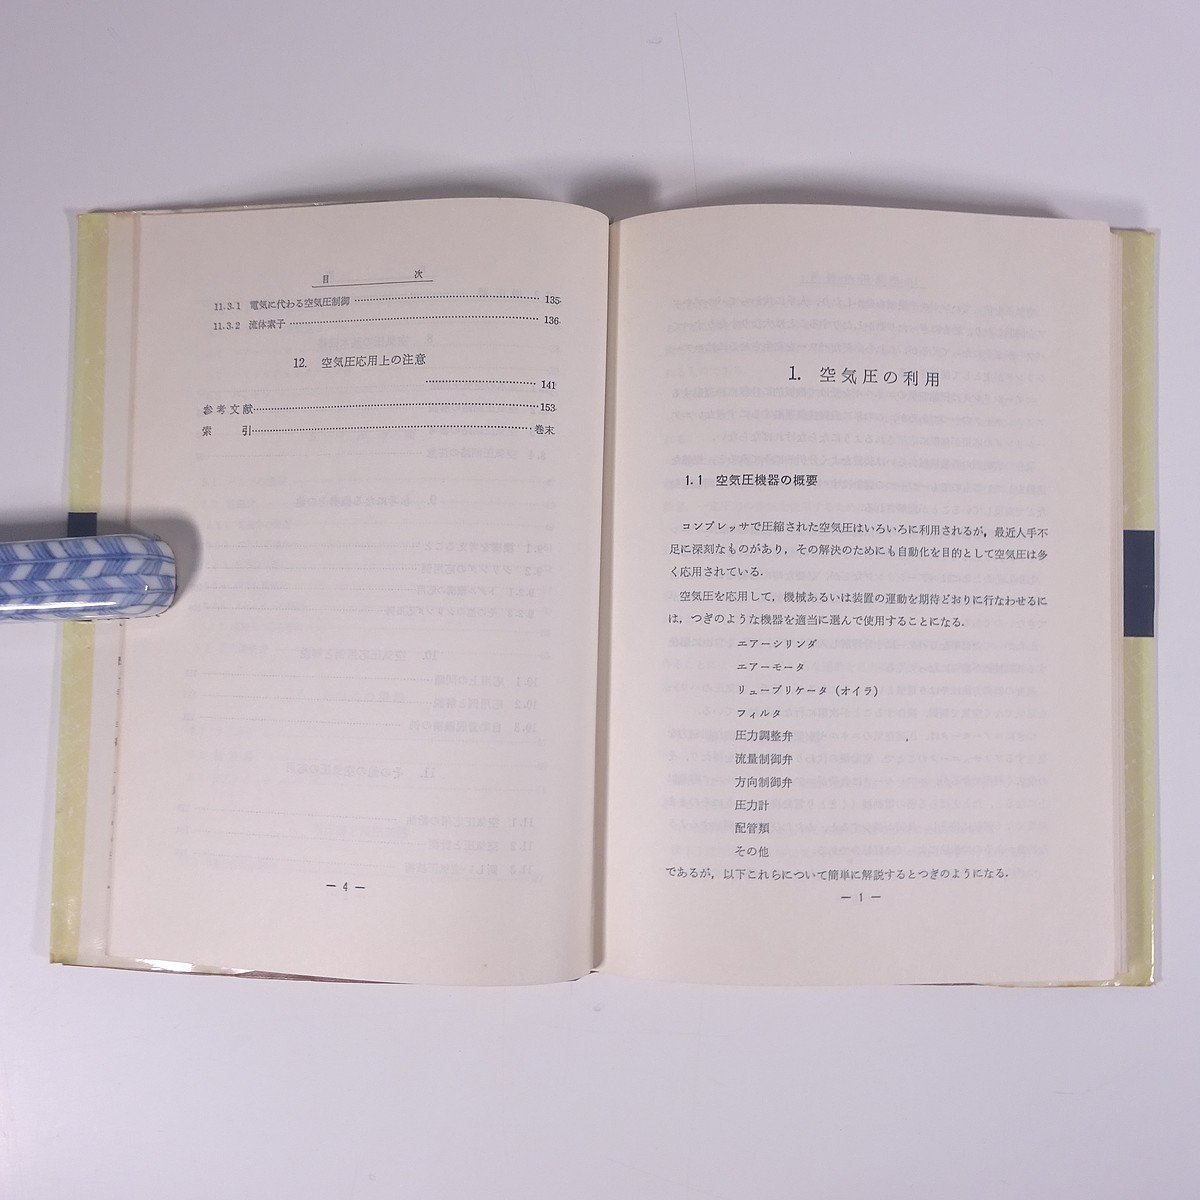 目　　　次
11.3.1 電気に代わる空気圧制御 135
11.3.2 流体素子 136
12. 空気圧応用上の注意
141
参考文献 153
索　引 巻末
— 4 —
1. 空気圧の利用
1.1 空気圧機器の概要
コンプレッサで圧縮された空気圧はいろいろに利用されるが，最近人手不
足に深刻なものがあり，その解決のためにも自動化を目的として空気圧は多
く応用されている．
空気圧を応用して，機械あるいは装置の運動を期待どおりに行なわせるに
は，つぎのような機器を適当に選んで使用することになる．
エアーシリンダ
エアーモータ
リューブリケータ（オイラ）
フィルタ
圧力調整弁
流量制御弁
方向制御弁
圧力計
配管類
その他
であるが，以下これらについて簡単に解説するとつぎのようになる．
— 1 —